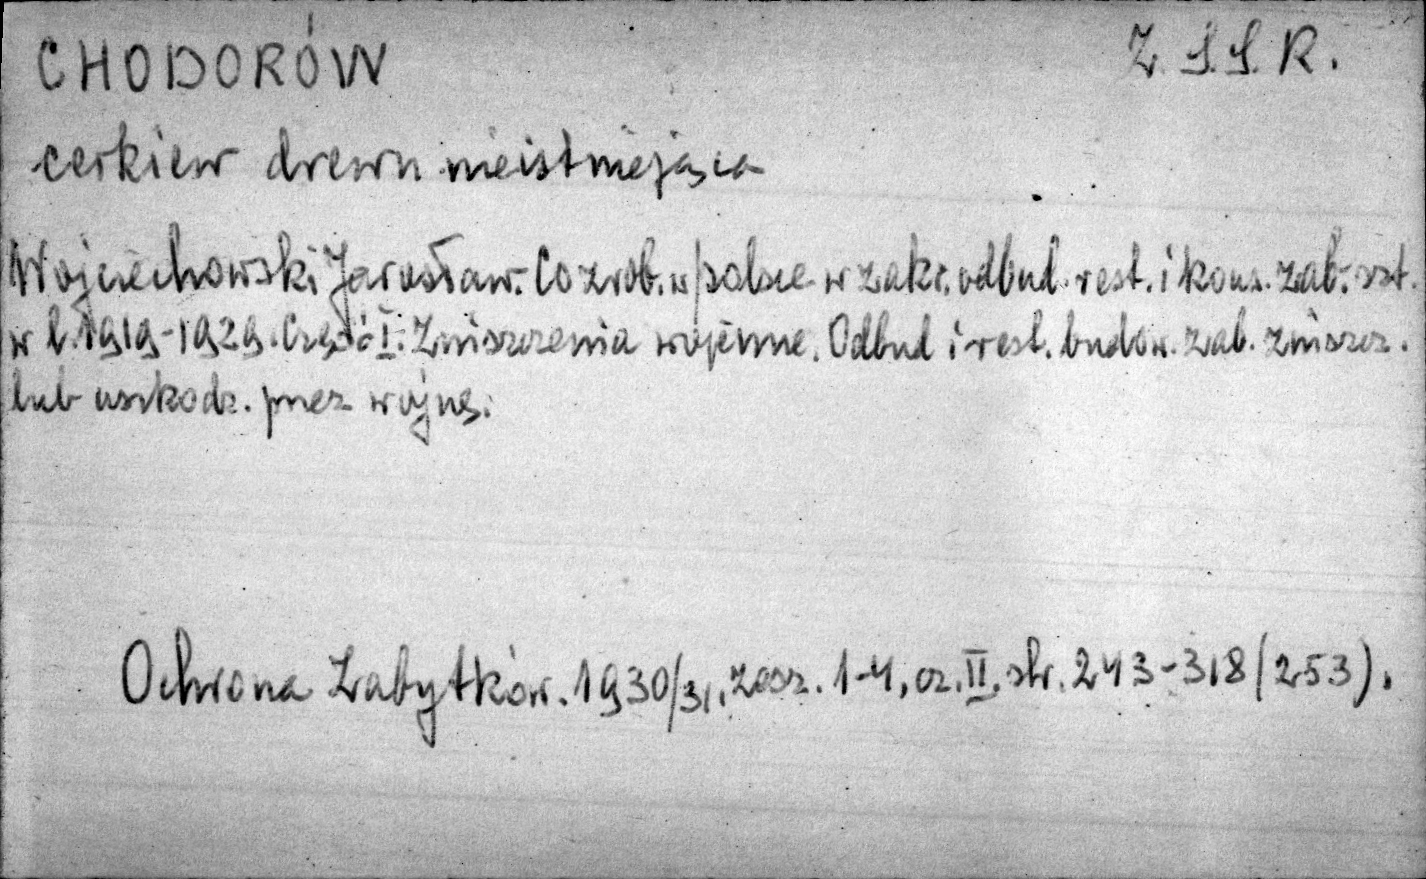 CHODORÓW
Z.S.S.R.
cerkiew drewn nieistniejąca
Wojciechowski Jarosław. Co zrob. w Polsce w zakr. odbud. rest. i kons. zab. szt.
w l. 1919-1929. Część I. Zniszczenia wojenne. Odbud i rest. budow. zab. zniszcz.
lub uszkodz. przez wojnę.
Ochrona Zabytków. 1930/31, zesz. 1-4, cz. II, str. 243-318 (253).